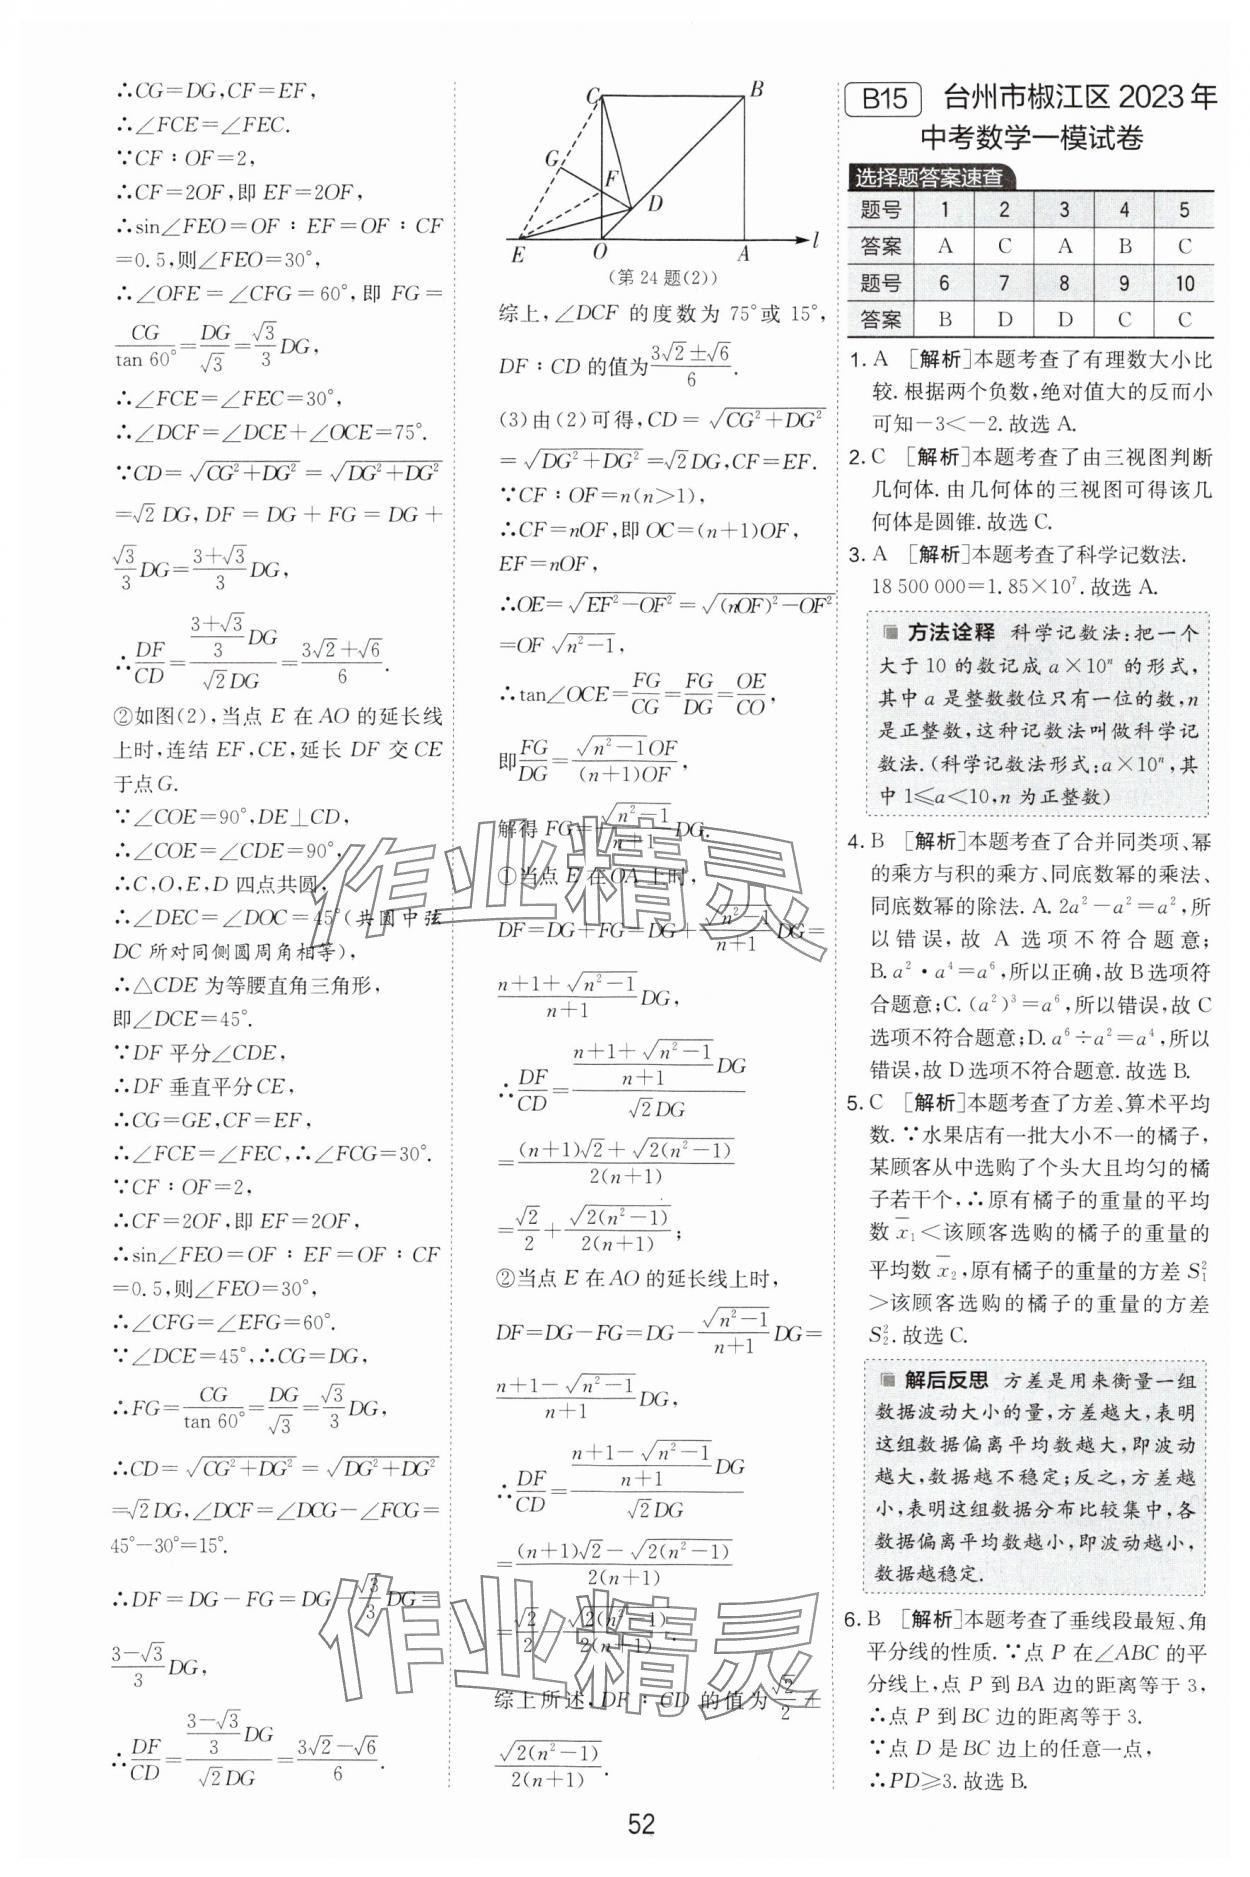 ∴CG=DG,CF=EF,
∴∠FCE=∠FEC.
∵CF∶OF=2,
∴CF=2OF,即EF=2OF,
∴sin∠FEO=OF∶EF=OF∶CF
=0.5,则∠FEO=30°,
∴∠OFE=∠CFG=60°,即 FG=
CG/tan 60°=DG/√3=√3/3 DG,
∴∠FCE=∠FEC=30°,
∴∠DCF=∠DCE+∠OCE=75°.
∵CD=√(CG²+DG²)=√(DG²+DG²)
=√2 DG,DF=DG+FG=DG+
√3/3 DG=(3+√3)/3 DG,
∴DF/CD=((3+√3)/3 DG)/(√2 DG)=(3√2+√6)/6.
②如图(2),当点 E 在 AO 的延长线
上时,连结 EF,CE,延长 DF 交 CE
于点G.
∵∠COE=90°,DE⊥CD,
∴∠COE=∠CDE=90°,
∴C,O,E,D 四点共圆,
∴∠DEC=∠DOC=45°(共圆中弦
DC 所对同侧圆周角相等),
∴△CDE 为等腰直角三角形,
即∠DCE=45°.
∵DF 平分∠CDE,
∴DF 垂直平分CE,
∴CG=GE,CF=EF,
∴∠FCE=∠FEC,∴∠FCG=30°.
∵CF∶OF=2,
∴CF=2OF,即 EF=2OF,
∴sin∠FEO=OF∶EF=OF∶CF
=0.5,则∠FEO=30°,
∴∠CFG=∠EFG=60°.
∵∠DCE=45°,∴CG=DG,
∴FG=CG/tan 60°=DG/√3=√3/3 DG,
∴CD=√(CG²+DG²)=√(DG²+DG²)
=√2 DG,∠DCF=∠DCG-∠FCG=
45°-30°=15°.
∴DF=DG-FG=DG-√3/3 DG=
(3-√3)/3 DG,
∴DF/CD=((3-√3)/3 DG)/(√2 DG)=(3√2-√6)/6.
C
B
G
F
D
E
O
A
l
(第 24 题(2))
综上,∠DCF 的度数为 75°或 15°,
DF∶CD 的值为(3√2±√6)/6.
(3)由(2)可得,CD=√(CG²+DG²)
=√(DG²+DG²)=√2 DG,CF=EF.
∵CF∶OF=n(n>1),
∴CF=nOF,即 OC=(n+1)OF,
EF=nOF,
∴OE=√(EF²-OF²)=√((nOF)²-OF²)
=OF √(n²-1),
∴tan∠OCE=FG/CG=FG/DG=OE/CO,
即FG/DG=(√(n²-1) OF)/((n+1)OF),
解得 FG=√(n²-1)/(n+1) DG.
①当点 E 在 OA 上时,
DF=DG+FG=DG+√(n²-1)/(n+1) DG=
(n+1+√(n²-1))/(n+1) DG,
∴DF/CD=((n+1+√(n²-1))/(n+1) DG)/(√2 DG)
=((n+1)√2+√(2(n²-1)))/(2(n+1))
=√2/2+√(2(n²-1))/(2(n+1));
②当点 E 在 AO 的延长线上时,
DF=DG-FG=DG-√(n²-1)/(n+1) DG=
(n+1-√(n²-1))/(n+1) DG,
∴DF/CD=((n+1-√(n²-1))/(n+1) DG)/(√2 DG)
=((n+1)√2-√(2(n²-1)))/(2(n+1))
=√2/2-√(2(n²-1))/(2(n+1)).
综上所述,DF∶CD 的值为√2/2±
√(2(n²-1))/(2(n+1)).
B15 台州市椒江区 2023 年
中考数学一模试卷
选择题答案速查
题号 1 2 3 4 5
答案 A C A B C
题号 6 7 8 9 10
答案 B D D C C
1. A [解析]本题考查了有理数大小比
较.根据两个负数,绝对值大的反而小
可知-3<-2.故选 A.
2. C [解析]本题考查了由三视图判断
几何体.由几何体的三视图可得该几
何体是圆锥.故选 C.
3. A [解析]本题考查了科学记数法.
18 500 000=1.85×10⁷.故选 A.
方法诠释 科学记数法:把一个
大于 10 的数记成 a×10ⁿ 的形式,
其中 a 是整数数位只有一位的数,n
是正整数,这种记数法叫做科学记
数法.(科学记数法形式:a×10ⁿ,其
中 1⩽a<10,n 为正整数)
4. B [解析]本题考查了合并同类项、幂
的乘方与积的乘方、同底数幂的乘法、
同底数幂的除法.A.2a²-a²=a²,所
以错误,故 A 选项不符合题意;
B.a²·a⁴=a⁶,所以正确,故 B选项符
合题意;C.(a²)³=a⁶,所以错误,故 C
选项不符合题意;D.a⁶÷a²=a⁴,所以
错误,故 D选项不符合题意.故选 B.
5. C [解析]本题考查了方差、算术平均
数.∵水果店有一批大小不一的橘子,
某顾客从中选购了个头大且均匀的橘
子若干个,∴原有橘子的重量的平均
数 x̄₁<该顾客选购的橘子的重量的
平均数 x̄₂,原有橘子的重量的方差 S₁²
>该顾客选购的橘子的重量的方差
S₂².故选 C.
解后反思 方差是用来衡量一组
数据波动大小的量,方差越大,表明
这组数据偏离平均数越大,即波动
越大,数据越不稳定;反之,方差越
小,表明这组数据分布比较集中,各
数据偏离平均数越小,即波动越小,
数据越稳定.
6. B [解析]本题考查了垂线段最短、角
平分线的性质.∵点 P 在∠ABC 的平
分线上,点 P 到 BA 边的距离等于 3,
∴点 P 到 BC 边的距离等于 3.
∵点 D 是 BC 边上的任意一点,
∴PD⩾3.故选 B.
作业精灵
作业精灵
52